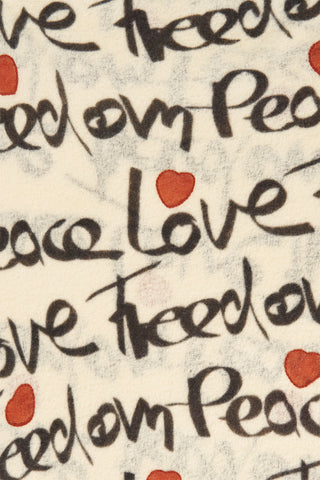 Love Freedom
Freedom Peace
Peace Love F
Love Freedom
Freedom Peace